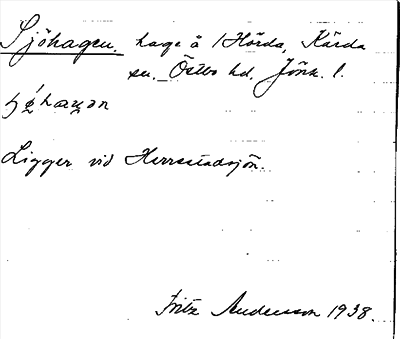 Sjöhagen. hage å 1 Hörda, Kärda
sn. Östbo hd, Jönk. l.
Ligger vid Herrestadsjön.
Fritz Andersson 1938.